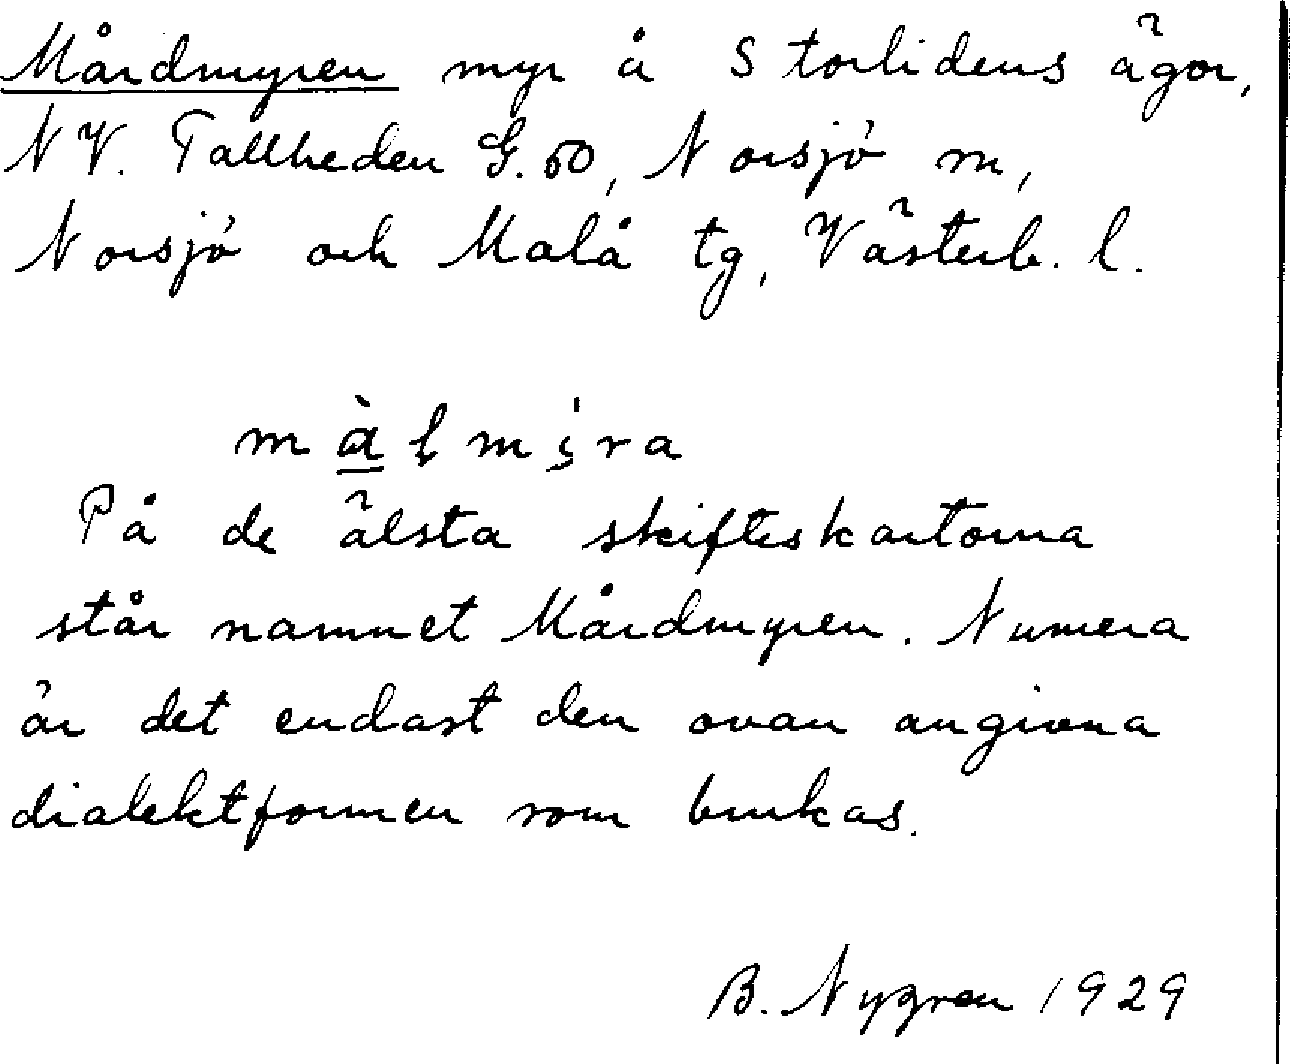 Mårdmyren myr å Storlidens ägor,
NV. Tallheden G. 50, Norsjö m,
Norsjö och Malå tg, Västerb. l.
mà̲ļmi̜ra
På de älsta skifteskartorna
står namnet Mårdmyren. Numera
är det endast den ovan angivna
dialektformen som brukas.
B. Nygren 1929